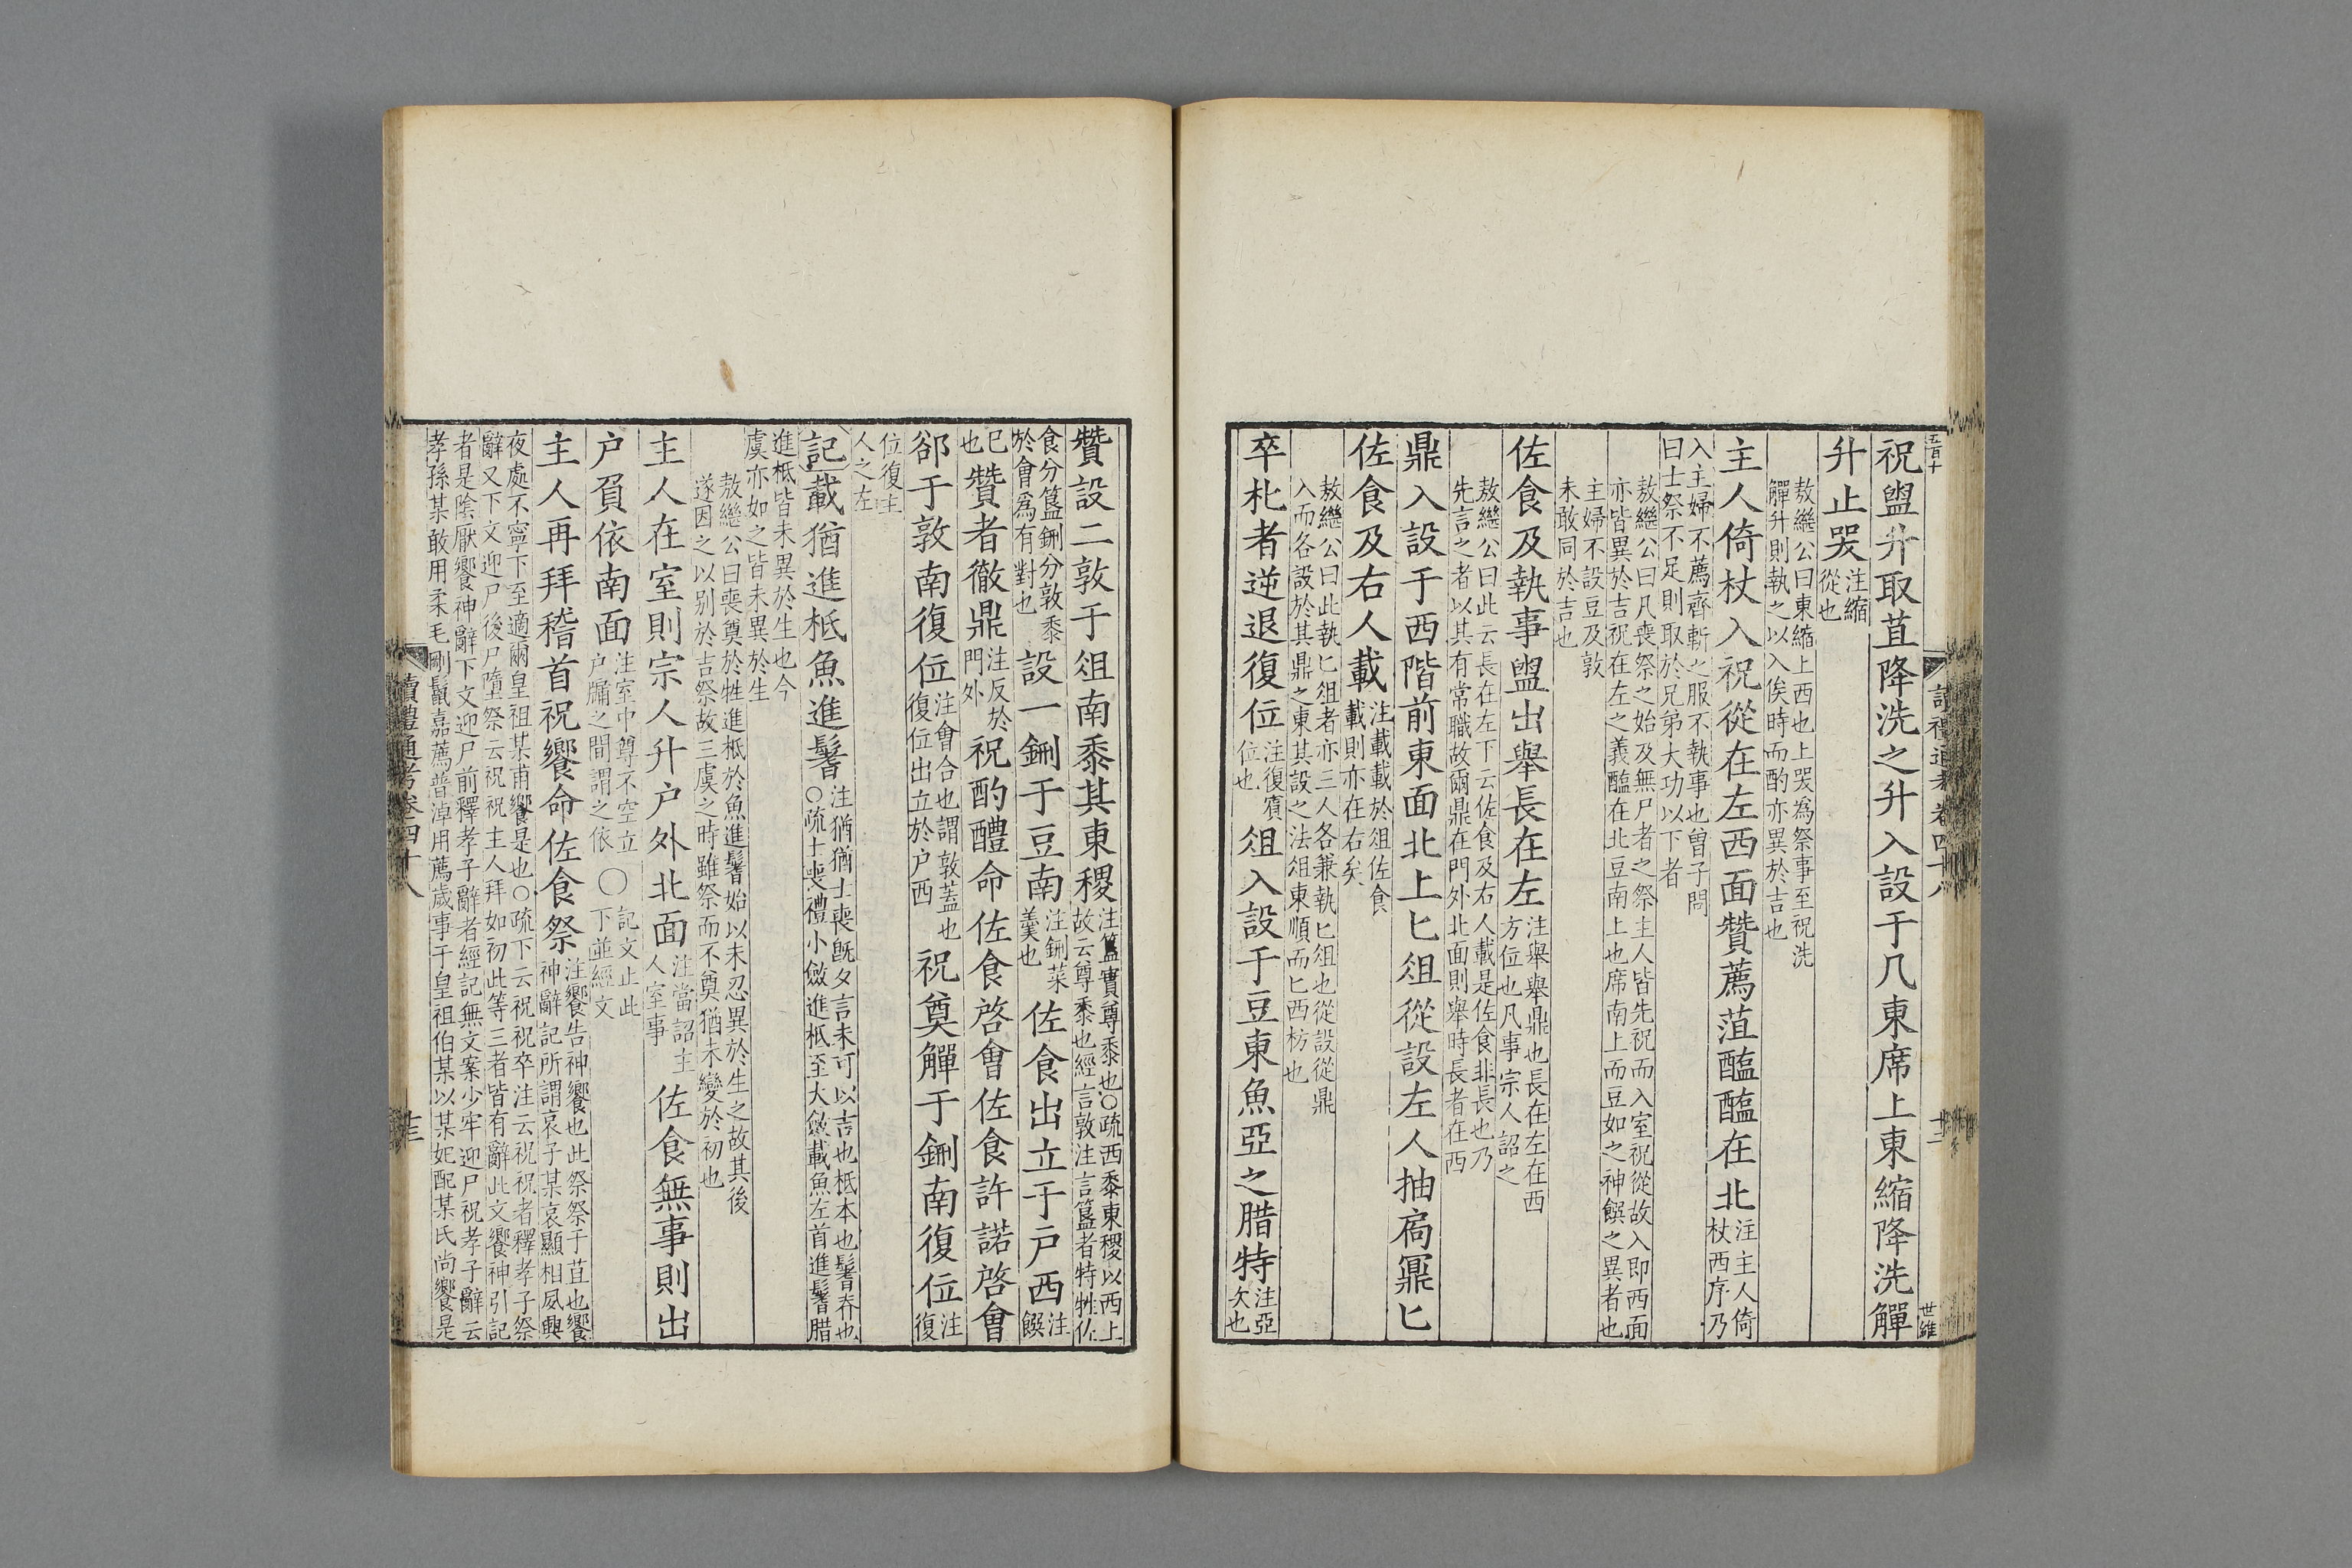 五百十
祝盥升取苴降洗之升入設于几東席上東縮降洗觶
升止哭注縮從也
敖繼公曰東縮上西也上哭爲祭事至祝洗
觶升則執之以入俟時而酌亦異於吉也
主人倚杖入祝從在左西面贊薦菹醢醢在北注主人倚杖西序乃
入主婦不薦齊斬之服不執事也曾子問
曰士祭不足則取於兄弟大功以下者
敖繼公曰凡喪祭之始及無尸者之祭主人皆先祝而入室祝從故入即西面
亦皆異於吉祝在左之義醢在北豆南上也席南上而豆如之神饌之異者也
主婦不設豆及敦
未敢同於吉也
佐食及執事盥出舉長在左注舉舉鼎也長在左在西方位也凡事宗人詔之
敖繼公曰此云長在左下云佐食及右人載是佐食非長也乃
先言之者以其有常職故爾鼎在門外北面則舉時長者在西
鼎入設于西階前東面北上匕俎從設左人抽扃鼏匕
佐食及右人載注載載於俎佐食載則亦在右矣
敖繼公曰此執匕俎者亦三人各兼執匕俎也從設從鼎
入而各設於其鼎之東其設之法俎東順而匕西枋也
卒朼者逆退復位注復賓位也俎入設于豆東魚亞之腊特注亞次也
讀禮通考卷四十八
十二
世維
贊設二敦于俎南黍其東稷注簋實尊黍也○疏西黍東稷以西上故云尊黍也經言敦注言簋者特牲佐
食分簋鉶分敦黍於會爲有對也設一鉶于豆南注鉶菜羹也佐食出立于戶西注饌
已也贊者徹鼎注反於門外祝酌醴命佐食啓會佐食許諾啓會
郤于敦南復位注會合也謂敦蓋也復位出立於户西祝奠觶于鉶南復位注復
位復主人之左
記載猶進柢魚進鬐注猶猶士喪既夕言未可以吉也柢本也鬐脊也○疏士喪禮小斂進柢至大斂載魚左首進鬐腊
進柢皆未異於生也今
虞亦如之皆未異於生
敖繼公曰喪奠於牲進柢於魚進鬐始以未忍異於生之故其後
遂因之以别於吉祭故三虞之時雖祭而不奠猶未變於初也
主人在室則宗人升户外北面注當詔主人室事佐食無事則出
户負依南面注室中尊不空立户牖之間謂之依○記文止此下並經文
主人再拜稽首祝饗命佐食祭注饗告神饗也此祭祭于苴也饗神辭記所謂哀子某哀顯相夙興
夜處不寧下至適爾皇祖某甫饗是也○疏下云祝祝卒注云祝祝者釋孝子祭
辭又下文迎尸後尸墮祭云祝祝主人拜如初此等三者皆有辭此文饗神引記
者是陰厭饗神辭下文迎尸前釋孝子辭者經記無文案少牢迎尸祝孝子辭云
孝孫某敢用柔毛剛鬣嘉薦普淖用薦歲事于皇祖伯某以某妃配某氏尚饗是
讀禮通考卷四十八
十三